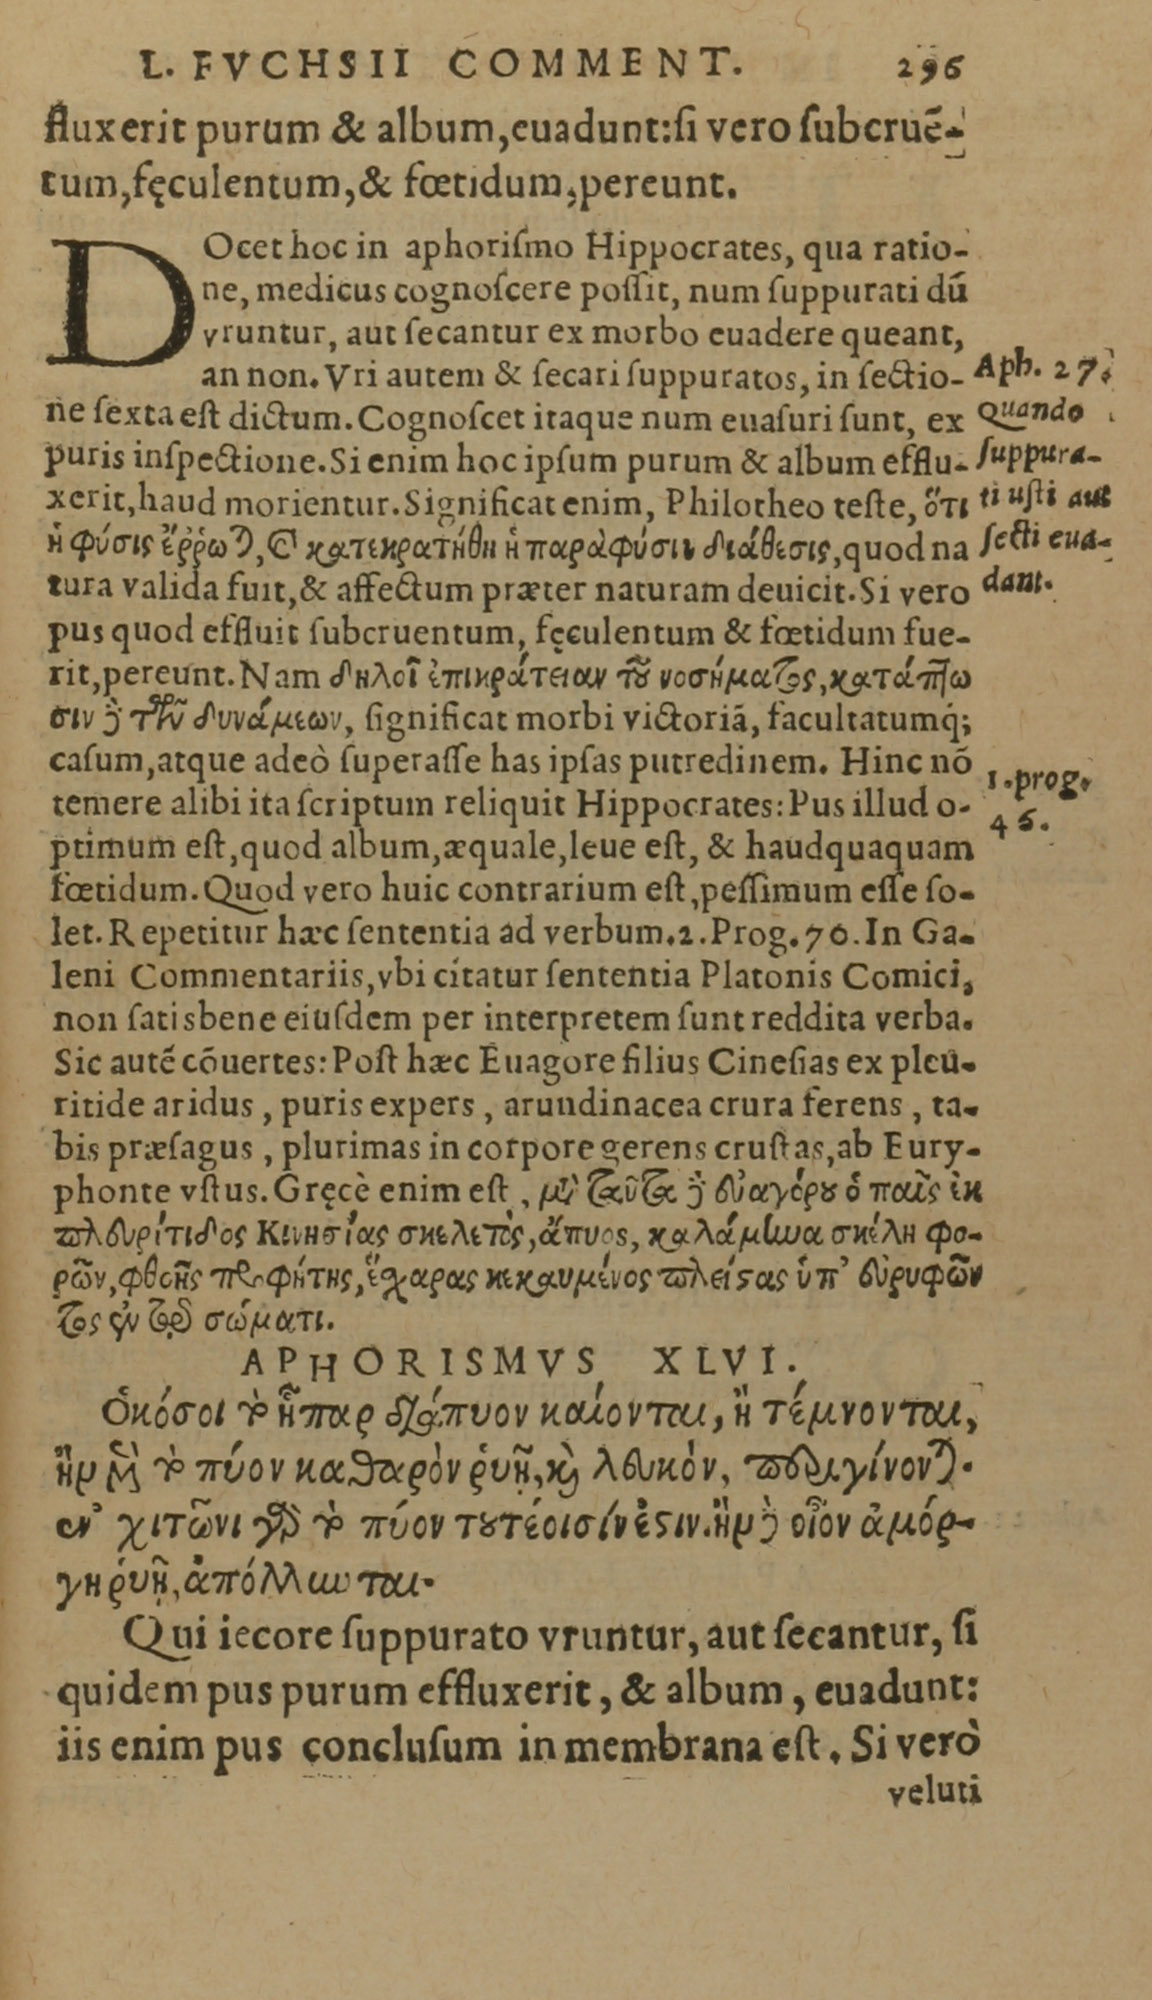 L. FVCHSII COMMENT. 296
fluxerit purum & album,euadunt:ſi vero ſubcruē-
tum,fęculentum,& fœtidum,pereunt.
DOcet hoc in aphoriſmo Hippocrates, qua ratio-
ne, medicus cognoſcere poſſit, num ſuppurati dū
vruntur, aut ſecantur ex morbo euadere queant,
an non. Vri autem & ſecari ſuppuratos, in ſectio-
Aph. 27.
ne ſexta eſt dictum. Cognoſcet itaque num euaſuri ſunt, ex
Quando
puris inſpectione. Si enim hoc ipſum purum & album efflu-
ſuppura-
xerit, haud morientur. Significat enim, Philotheo teſte, ὅτι
ti uſti aut
ἡ φύσις ἔῤῥωται, καὶ κατεκρατήθη ἡ παρὰ φύσιν διάθεσις, quod na
ſecti eua-
tura valida fuit, & affectum præter naturam deuicit. Si vero
dant.
pus quod effluit ſubcruentum, fęculentum & fœtidum fue-
rit, pereunt. Nam δηλοῖ ἐπικράτειαν τοῦ νοσήματος, κατάπτω
σιν δὲ τῶν δυνάμεων, ſignificat morbi victoriā, facultatumq́;
caſum, atque adeò ſuperaſſe has ipſas putredinem. Hinc nō
1. prog.
temere alibi ita ſcriptum reliquit Hippocrates: Pus illud o-
46.
ptimum eſt, quod album, æquale, leue eſt, & haudquaquam
fœtidum. Quod vero huic contrarium eſt, peſſimum eſſe ſo-
let. Repetitur hæc ſententia ad verbum. 2. Prog. 70. In Ga-
leni Commentariis, vbi citatur ſententia Platonis Comici,
non ſatis bene eiuſdem per interpretem ſunt reddita verba.
Sic autē cōuertes: Poſt hæc Euagore filius Cineſias ex pleu-
ritide aridus, puris expers, arundinacea crura ferens, ta-
bis præſagus, plurimas in corpore gerens cruſtas, ab Eury-
phonte vſtus. Gręcè enim eſt, μετὰ ταῦτα δὲ εὐαγόρου ὁ παῖς ἐκ
πλευρίτιδος Κινησίας σκελετὸς, ἄπυος, καλάμινα σκέλη φο-
ρῶν, φθόης προφήτης, ἔχαρας κεκαυμένος πλείστας ὑπ' εὐρυφῶν
τος ἐν τῷ σώματι.
APHORISMVS XLVI.
Ὁκόσοι τὸ ἧπαρ διάπυον καίονται, ἢ τέμνονται,
ἢν μὲν τὸ πύον καθαρὸν ῥυῇ, καὶ λευκὸν, περιγίνονται.
ἐν χιτῶνι γὰρ τὸ πύον τουτέοισίν ἐστιν. ἢν δὲ οἷον ἀμόρ-
γη ῥυῇ, ἀπόλλυνται.
Qui iecore ſuppurato vruntur, aut ſecantur, ſi
quidem pus purum effluxerit, & album, euadunt:
iis enim pus concluſum in membrana eſt. Si verò
veluti